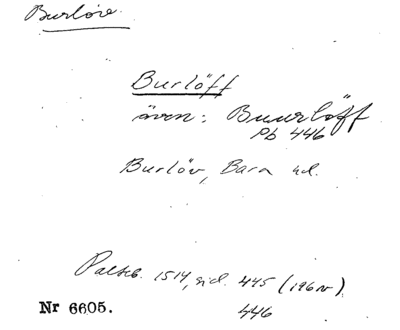 Burlöv.
Burlöff
även: Buurlöff
Pb 446
Burlöv, Bara hd.
Paltsb. 1514, sid. 445 (196 nr).
446
Nr 6605.